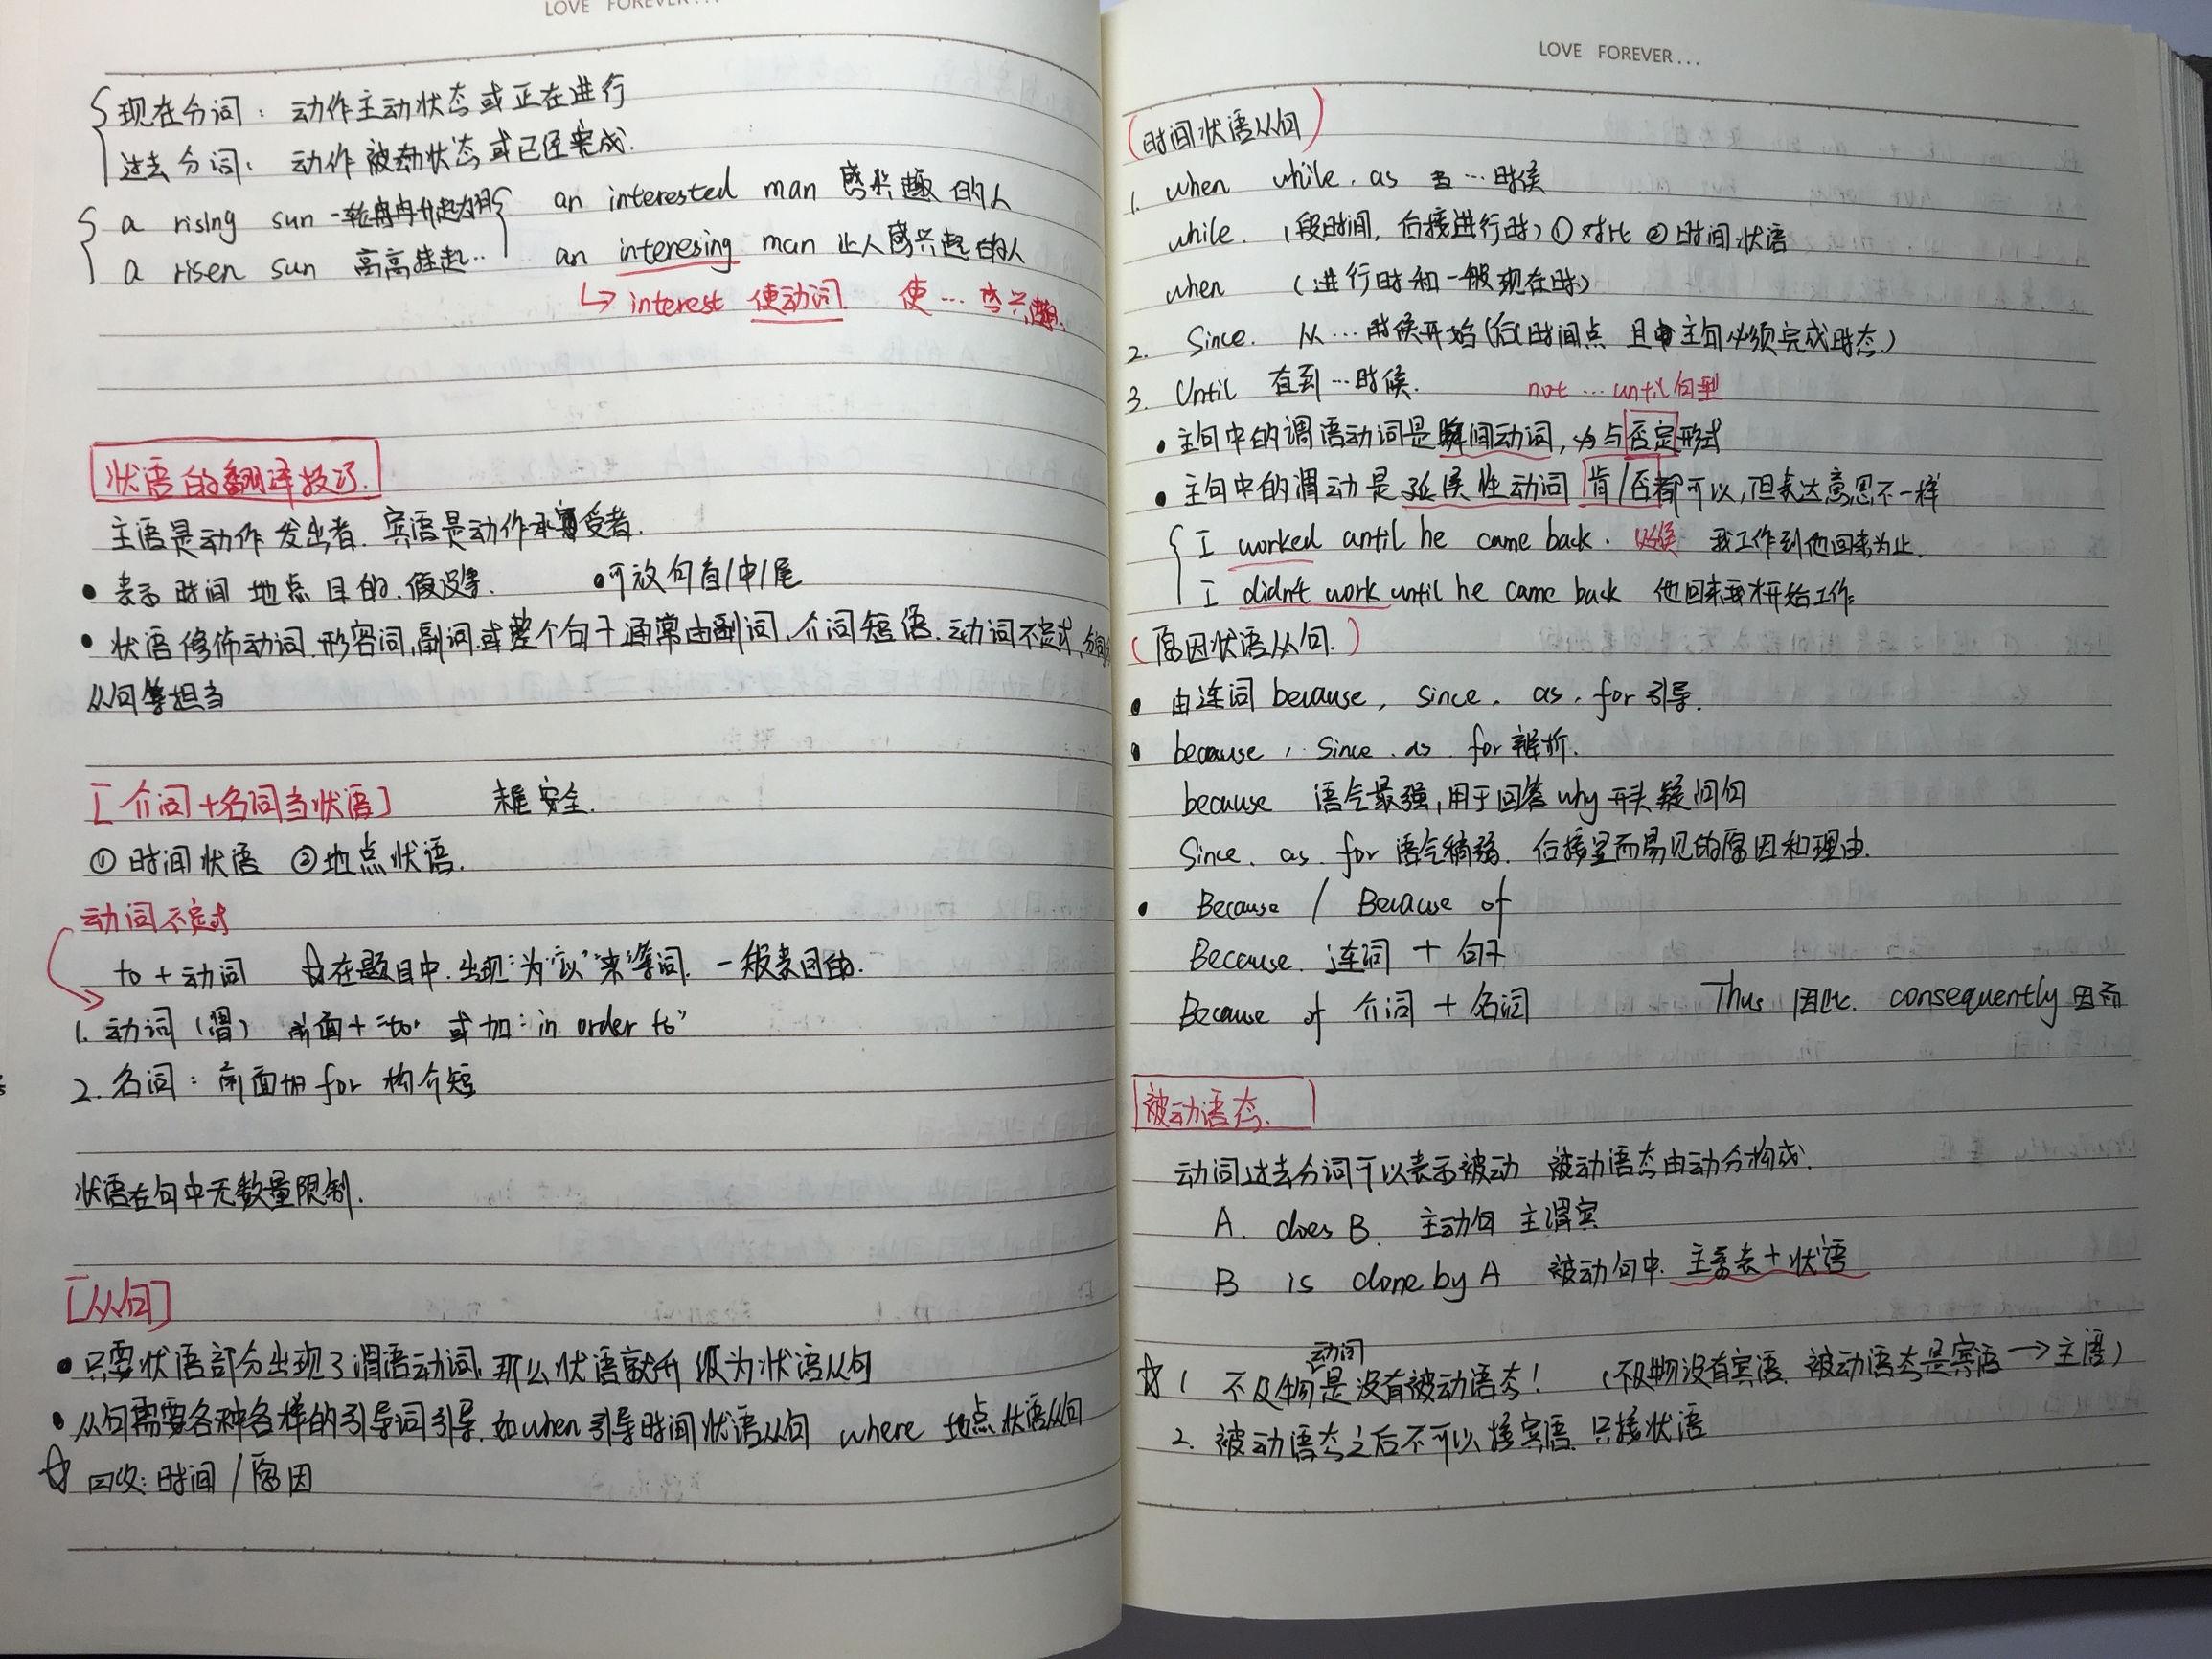 LOVE FOREVER...
现在分词：动作主动状态或正在进行
过去分词：动作被动状态或已经完成.
a rising sun 一轮冉冉升起的 an interested man 感兴趣的人
a risen sun 高高挂起.. an interesing man 让人感兴起的人
↳ interest 使动词 使…感兴趣.
状语的翻译技巧.
主语是动作发出者. 宾语是动作承受者.
• 表示时间 地点 目的.假设等. •可放句首/中/尾
• 状语修饰动词.形容词,副词.或整个句子通常由副词、介词短语.动词不定式,分词
从句等担当
[介词+名词当状语] 末尾安全.
① 时间状语 ②地点状语.
动词不定式
to + 动词 ☆在题目中.出现:"为""以""来"等词. 一般表目的.
1. 动词（谓）前面+"to" 或加:"in order to"
2. 名词：前面加 for 构介短
状语在句中无数量限制.
[从句]
• 只要状语部分出现了谓语动词,那么状语就升级为状语从句
• 从句需要各种各样的引导词引导.如when引导时间状语从句 where 地点状语从句
☆ 回收:时间/原因
LOVE FOREVER...
(时间状语从句)
1. when while. as 当…时候
while. (段时间, 后接进行时) ① 对比 ② 时间状语
when (进行时和一般现在时)
2. Since. 从…时候开始(后时间点 且主句必须完成时态)
3. Until 直到…时候. not …until句型
• 主句中的谓语动词是瞬间动词, 与否定形式
• 主句中的谓动是延候性动词 肯/否都可以,但表达意思不一样
I worked until he came back. 我工作到他回来为止.
I didn't work until he came back 他回来我才开始工作.
(原因状语从句.)
• 由连词 because, since. as. for 引导.
• because, Since. as. for 辨析.
because 语气最强,用于回答why开头疑问句
Since. as. for 语气稍弱. 后接显而易见的原因和理由.
• Because / Because of
Because. 连词 + 句子
Because of 介词 + 名词 Thus 因此. consequently 因而
被动语态.
动词过去分词可以表示被动 被动语态由动分构成.
A. does B. 主动句 主谓宾
B is done by A 被动句中. 主系表+状语
动词
☆ 1 不及物是没有被动语态! (不及物没有宾语. 被动语态是宾语→主语)
2. 被动语态之后不可以接宾语.只接状语